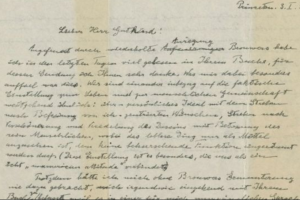 Princeton. 3. I.
Lieber Herr Gutkind!
Angefeuert durch wiederholte Anregung Brouwers habe
ich in den letzten Tagen viel gelesen in Ihrem Buche, für
dessen Sendung ich Ihnen sehr danke. Was mir dabei besonders
auffiel war dies. Wir sind einander in Bezug auf die faktische
Einstellung zum Leben und zur menschlichen Gemeinschaft
weitgehend ähnlich: über-persönliches Ideal mit dem Streben
nach Befreiung von ich-zentrierten Wünschen, Streben nach
Verschönerung und Veredelung des Daseins mit Betonung des
rein Menschlichen, wobei das leblose Ding nur als Mittel
anzusehen ist, dem keine beherrschende Funktion eingeräumt
werden darf. (Diese Einstellung ist es besonders, die uns als ein
echt "unamerican attitude" verbindet)
Trotzdem hätte ich mich ohne Brouwers Ermunterung
nie dazu gebracht, mich irgendwie eingehend mit Ihrem